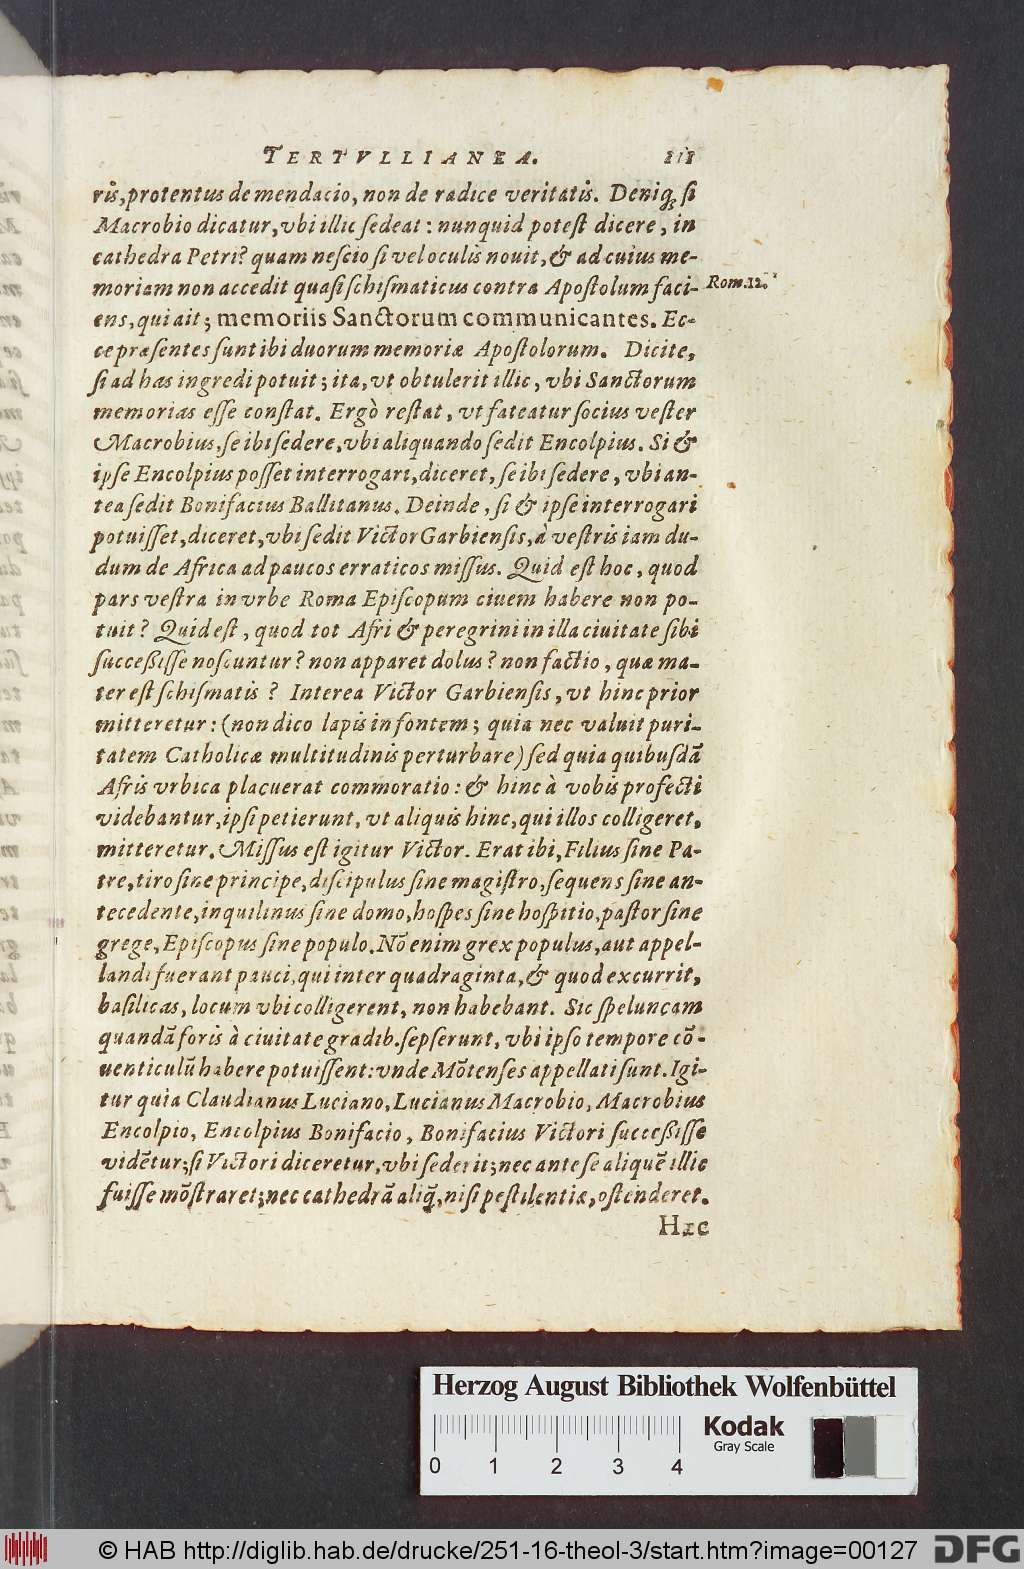 TERTVLLIANEA.
ris, protentus de mendacio, non de radice veritatis. Deniq; si
Macrobio dicatur, vbi illic sedeat: nunquid potest dicere, in
cathedra Petri? quam nescio si vel oculis nouit, & ad cuius me-
moriam non accedit quasi schismaticus contra Apostolum faci-
Rom.12.
ens, qui ait; memoriis Sanctorum communicantes. Ec-
ce præsentes sunt ibi duorum memoriæ Apostolorum. Dicite,
si ad has ingredi potuit; ita, vt obtulerit illic, vbi Sanctorum
memorias esse constat. Ergò restat, vt fateatur socius vester
Macrobius, se ibi sedere, vbi aliquando sedit Encolpius. Si &
ipse Encolpius posset interrogari, diceret, se ibi sedere, vbi an-
tea sedit Bonifacius Ballitanus. Deinde, si & ipse interrogari
potuisset, diceret, vbi sedit Victor Garbiensis, à vestris iam du-
dum de Africa ad paucos erraticos missus. Quid est hoc, quod
pars vestra in vrbe Roma Episcopum ciuem habere non po-
tuit? Quid est, quod tot Afri & peregrini in illa ciuitate sibi
successisse noscuntur? non apparet dolus? non factio, quæ ma-
ter est schismatis? Interea Victor Garbiensis, vt hinc prior
mitteretur: (non dico lapis in fontem; quia nec valuit puri-
tatem Catholicæ multitudinis perturbare) sed quia quibusdã
Afris vrbica placuerat commoratio: & hinc à vobis profecti
videbantur, ipsi petierunt, vt aliquis hinc, qui illos colligeret,
mitteretur. Missus est igitur Victor. Erat ibi, Filius sine Pa-
tre, tiro sine principe, discipulus sine magistro, sequens sine an-
tecedente, inquilinus sine domo, hospes sine hospitio, pastor sine
grege, Episcopus sine populo. Nõ enim grex populus, aut appel-
landi fuerant pauci, qui inter quadraginta, & quod excurrit,
basilicas, locum vbi colligerent, non habebant. Sic speluncam
quandã foris à ciuitate gradib. sepserunt, vbi ipso tempore cõ-
uenticulũ habere potuissent: vnde Mõtenses appellati sunt. Igi-
tur quia Claudianus Luciano, Lucianus Macrobio, Macrobius
Encolpio, Encolpius Bonifacio, Bonifacius Victori successisse
vidẽtur; si Victori diceretur, vbi sederit; nec ante se aliquẽ illic
fuisse mõstraret; nec cathedrã aliq̃, nisi pestilentiæ, ostenderet.
Hæc
Herzog August Bibliothek Wolfenbüttel
Kodak
Gray Scale
0 1 2 3 4
© HAB http://diglib.hab.de/drucke/251-16-theol-3/start.htm?image=00127
DFG